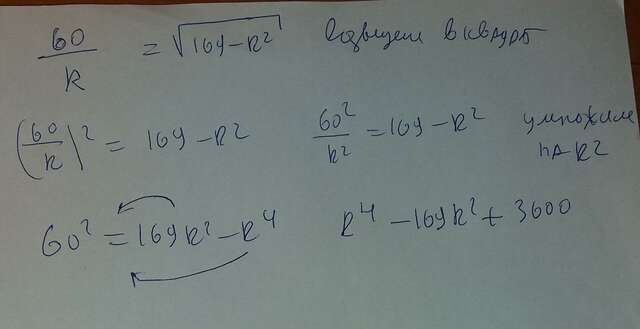 60/R = √(169-R²) Возведем в квадрат
(60/R)² = 169-R² 60²/R² = 169-R² умножим на R²
60² = 169R²-R⁴ R⁴-169R²+3600